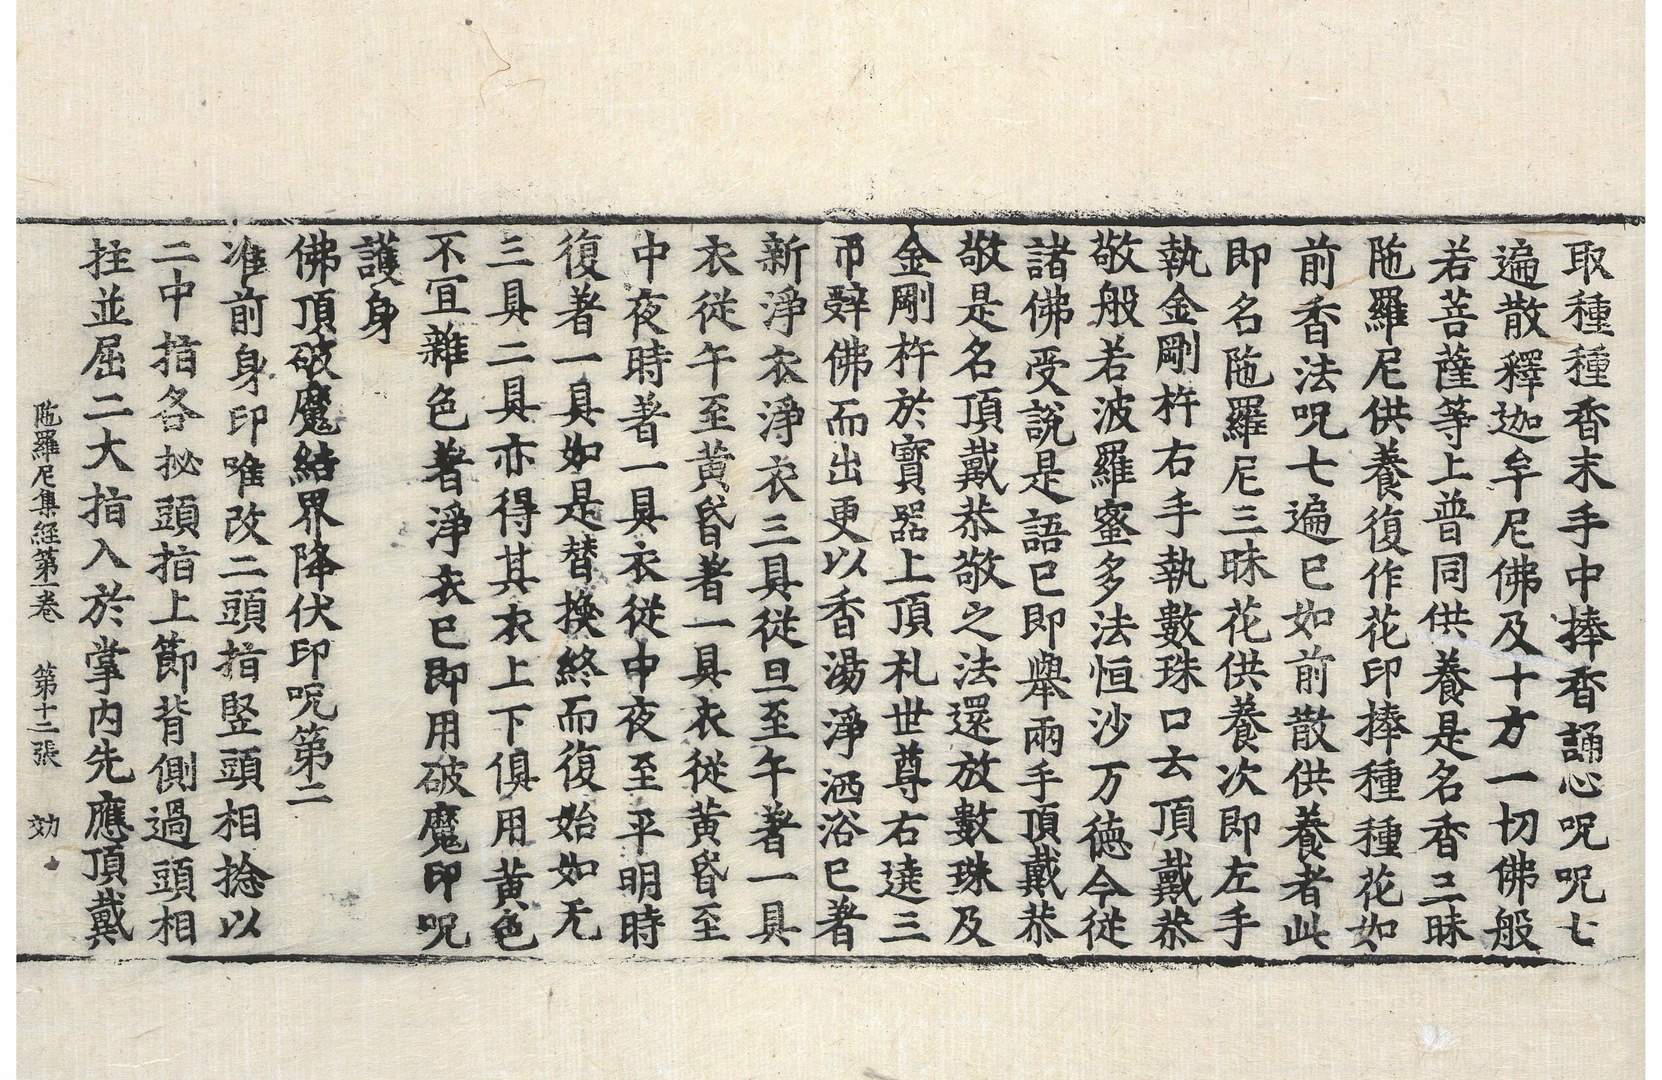 取種種香末手中捧香誦心呪呪七
遍散釋迦牟尼佛及十方一切佛般
若菩薩等上普同供養是名香三昧
陁羅尼供養復作花印捧種種花如
前香法呪七遍已如前散供養者此
即名陁羅尼三昧花供養次即左手
執金剛杵右手執數珠口云頂戴恭
敬般若波羅蜜多法恒沙万德今從
諸佛受說是語已即舉兩手頂戴恭
敬是名頂戴恭敬之法還放數珠及
金剛杵於寶器上頂札世尊右遶三
帀辝佛而出更以香湯淨洒浴已著
新淨衣淨衣三具從旦至午著一具
衣從午至黃昏著一具衣從黃昏至
中夜時著一具衣從中夜至平明時
復著一具如是替換終而復始如无
三具二具亦得其衣上下俱用黃色
不宜雜色著淨衣已即用破魔印呪
護身
佛頂破魔結界降伏印呪第二
准前身印唯改二頭指竪頭相捻以
二中指各拟頭指上節背側過頭相
拄並屈二大指入於掌內先應頂戴
陁羅尼集經第一卷　第十二張　効